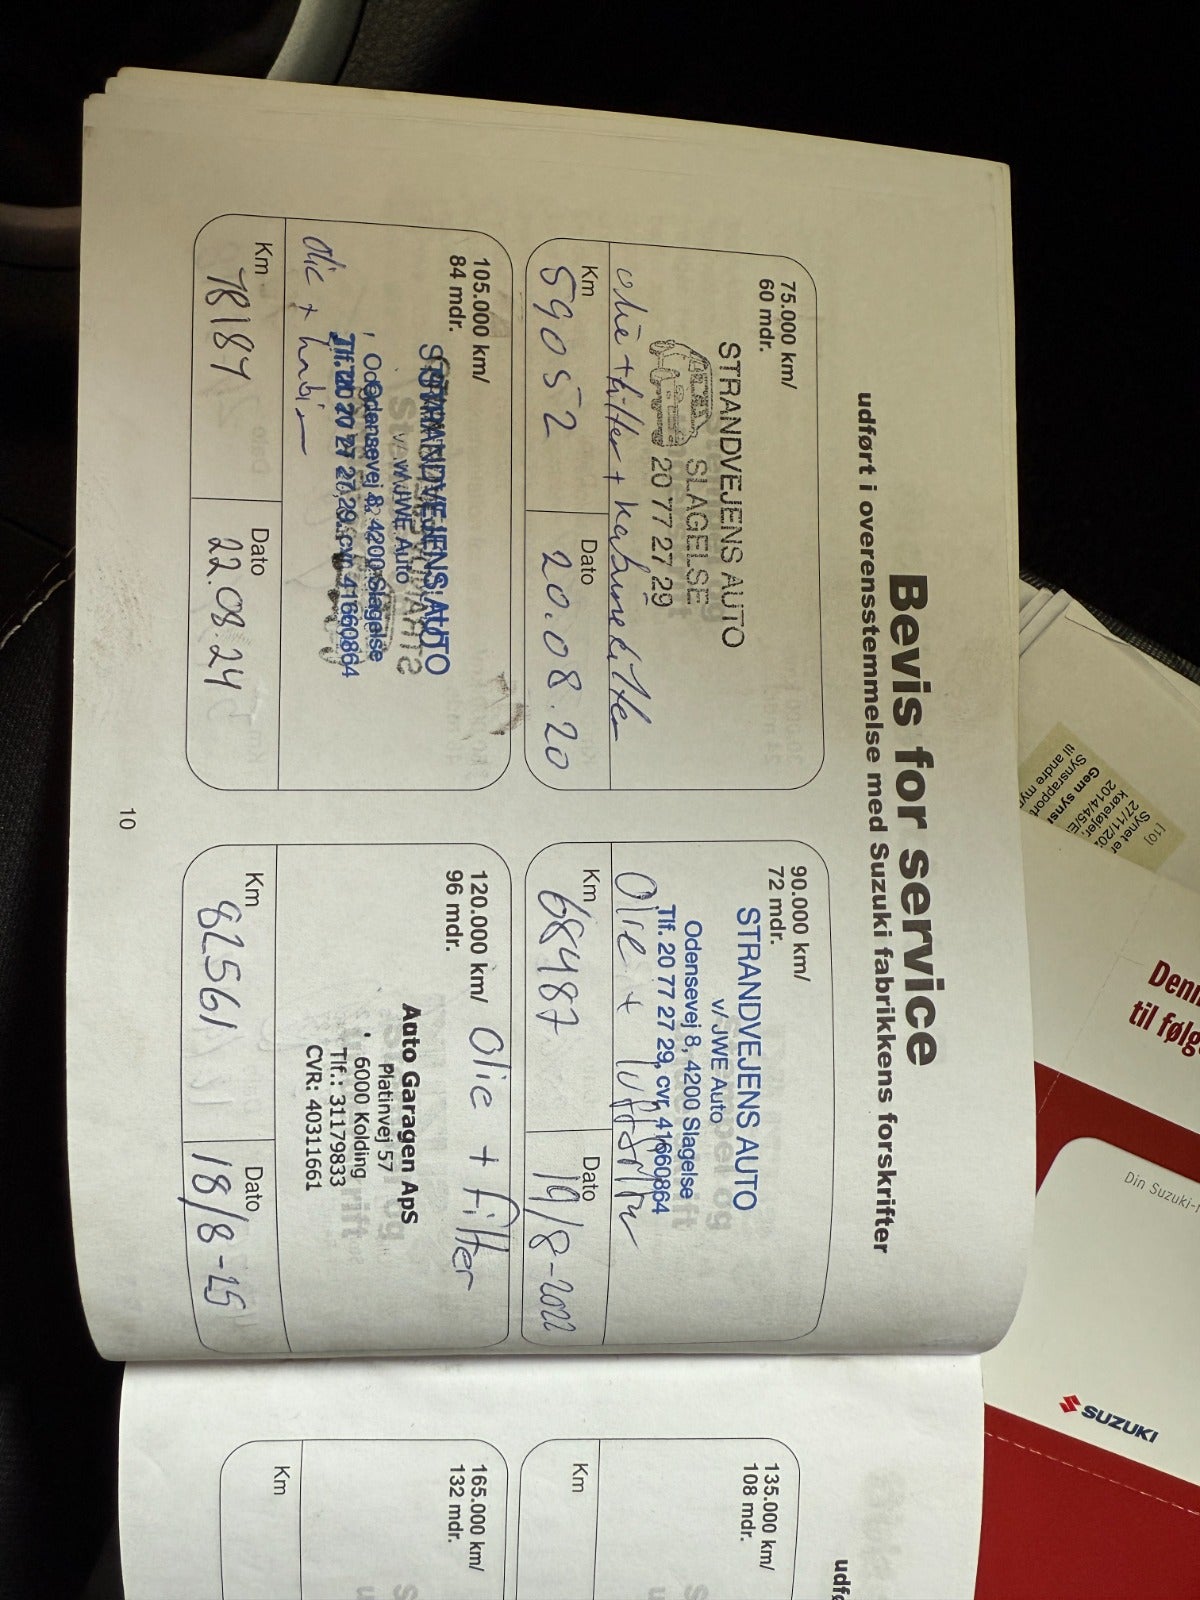 Bevis for service
udført i overensstemmelse med Suzuki fabrikkens forskrifter
75.000 km/
60 mdr.
STRANDVEJENS AUTO
SLAGELSE
20 77 27 29
olie + filter + kabinefilter
Km
59052
Dato
20.08.20
90.000 km/
72 mdr.
STRANDVEJENS AUTO
v/ JWE Auto
Odensevej 8, 4200 Slagelse
Tlf. 20 77 27 29, cvr. 41660864
Olie +
Km
68487
Dato
19/8-2022
105.000 km/
84 mdr.
STRANDVEJENS AUTO
v/ JWE Auto
Odensevej 8, 4200 Slagelse
Tlf. 20 77 27 29, cvr. 41660864
olie +
Km
78187
Dato
22.08.24
120.000 km/
96 mdr.
Olie + filter
Auto Garagen ApS
Platinvej 57
6000 Kolding
Tlf.: 31179833
CVR: 40311661
Km
82561
Dato
18/8-25
10
135.000 km/
108 mdr.
Km
165.000 km/
132 mdr.
Km
udfø
[10]
Synet er
27/11/20
køretøjer
2014/45/E
Gem syns
Synsrapport
til andre myn
Denn
til følg
Din Suzuki-f
SUZUKI